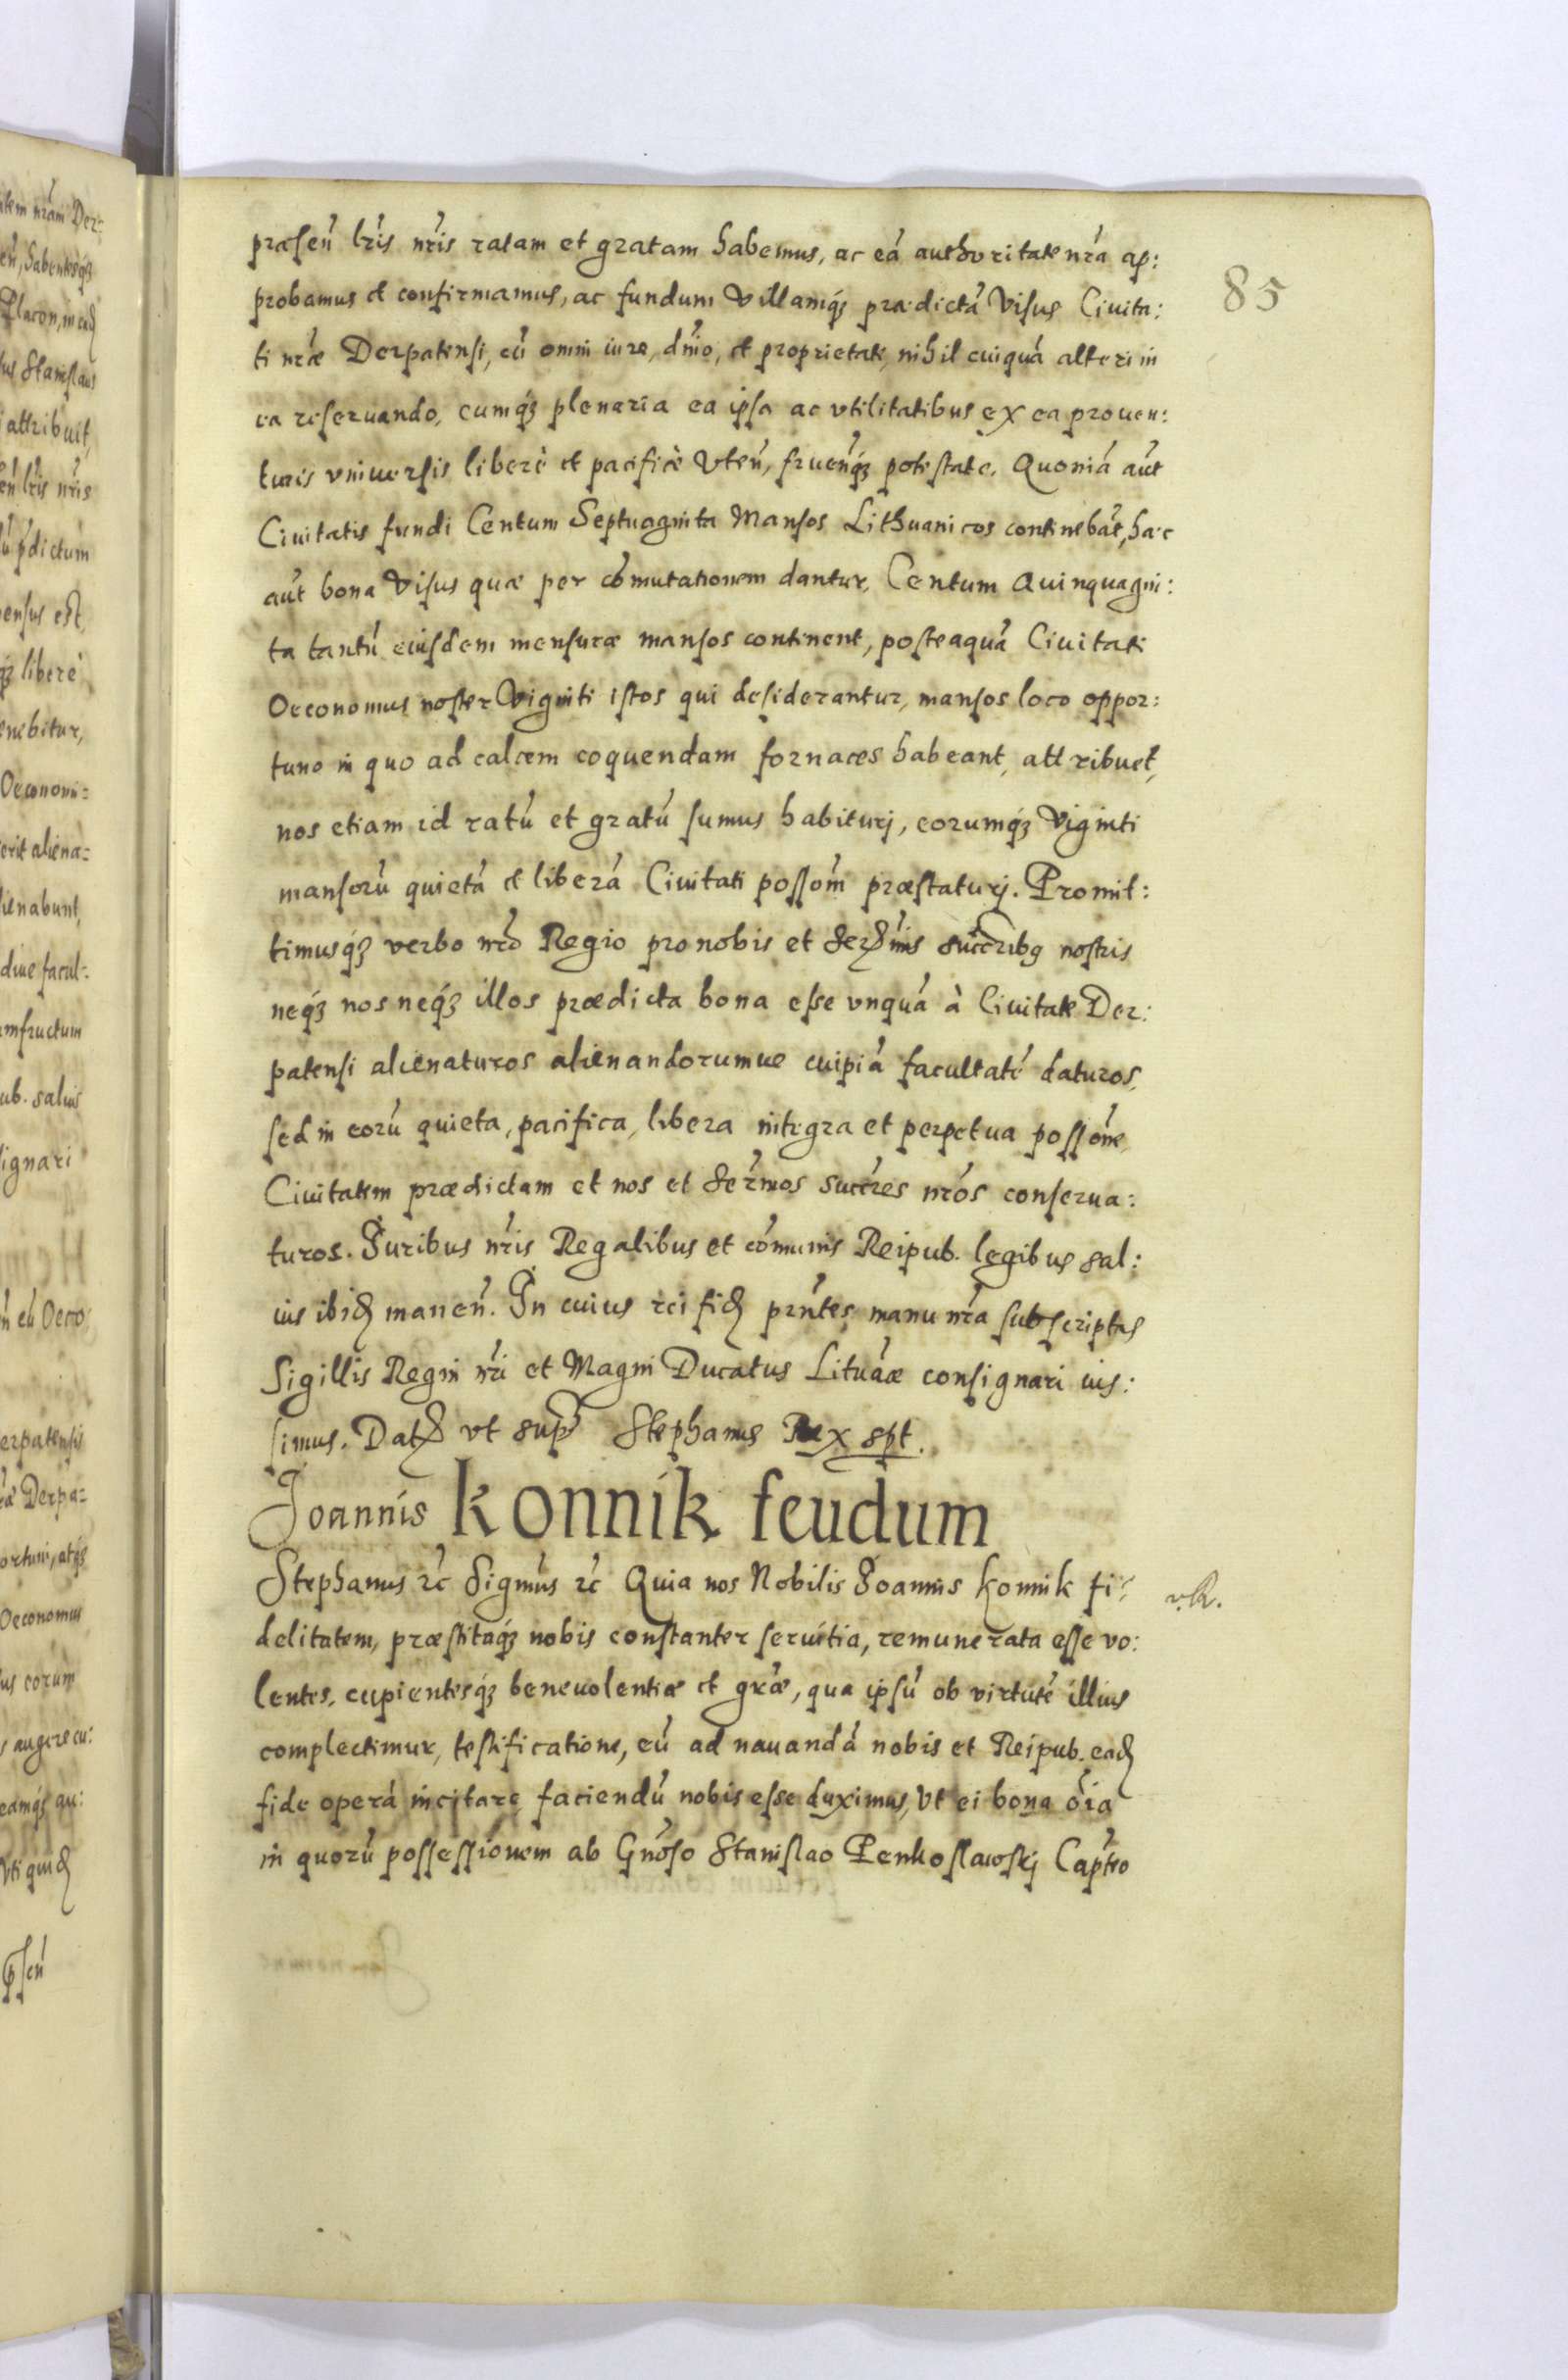 85
præsen̄ lr̄is nr̄is ratam et gratam habemus, ac eā authoritate nr̄a ap:
probamus et confirmamus, ac fundum Villamq́ꝫ prædictā Visus Ciuita:
ti nr̄æ Derpatensi, cū omni iure, dn̄io, et proprietate, nihil cuiquā alteri in
ea reseruando, cumq́ꝫ plenaria ea ipsa ac vtilitatibus ex ea prouen:
turis vniuersis liberè et pacificè Vten̄, fruen̄q́ꝫ potestate. Quoniā aūt
Ciuitatis fundi Centum Septuaginta Mansos Lithuanicos continebāt, hæc
aūt bona Visus quæ per cōmutationem dantur, Centum Quinquagin:
ta tantū eiusdem mensuræ mansos continent, posteaquā Ciuitati
Oeconomus noster Viginti istos qui desiderantur, mansos loco oppor:
tuno in quo ad calcem coquendam fornaces habeant, attribuet,
nos etiam id ratū et gratū sumus habiturj, eorumq́ꝫ Viginti
mansorū quietā et liberā Ciuitati possom̄ præstaturj. Promit:
timusq́ꝫ verbo nr̄o Regio pro nobis et Serꝫmis succribꝫ nostris
neq́ꝫ nos neq́ꝫ illos prædicta bona esse vnquā à Ciuitate Der:
patensi alienaturos alienandorumue cuipiā facultatē daturos,
sed in eorū quieta, pacifica, libera integra et perpetua possōne
Ciuitatem prædictam et nos et Serm̄os Succr̄es nr̄os conserua:
turos. Juribus nr̄is Regalibus et cōmunis Reipub. legibus sal:
uis ibidꝫ manen̄. In cuius rei fidꝫ prn̄tes manu nr̄a subscriptas
Sigillis Regni nr̄i et Magni Ducatus Lituāæ consignari ius:
simus. Datꝫ vt sup̄ Stephanus Rex spt.
Joannis Konnik feudum
Stephanus ꝛc̄ Sigm̄us ꝛc̄ Quia nos Nobilis Joannis Konnik fi:
delitatem, præstitaq́ꝫ nobis constanter seruitia, remunerata esse vo:
lentes, cupientesq́ꝫ beneuolentiæ et gr̄æ, qua ipsū ob virtutē illius
complectimur, testificatione, eū ad nauandā nobis et Reipub. eadꝫ
fide operā incitare faciendū nobis esse duximus, Vt ei bona oīa
in quorū possessionem ab Gnōso Stanislao Penkoslawskj Captn̄o